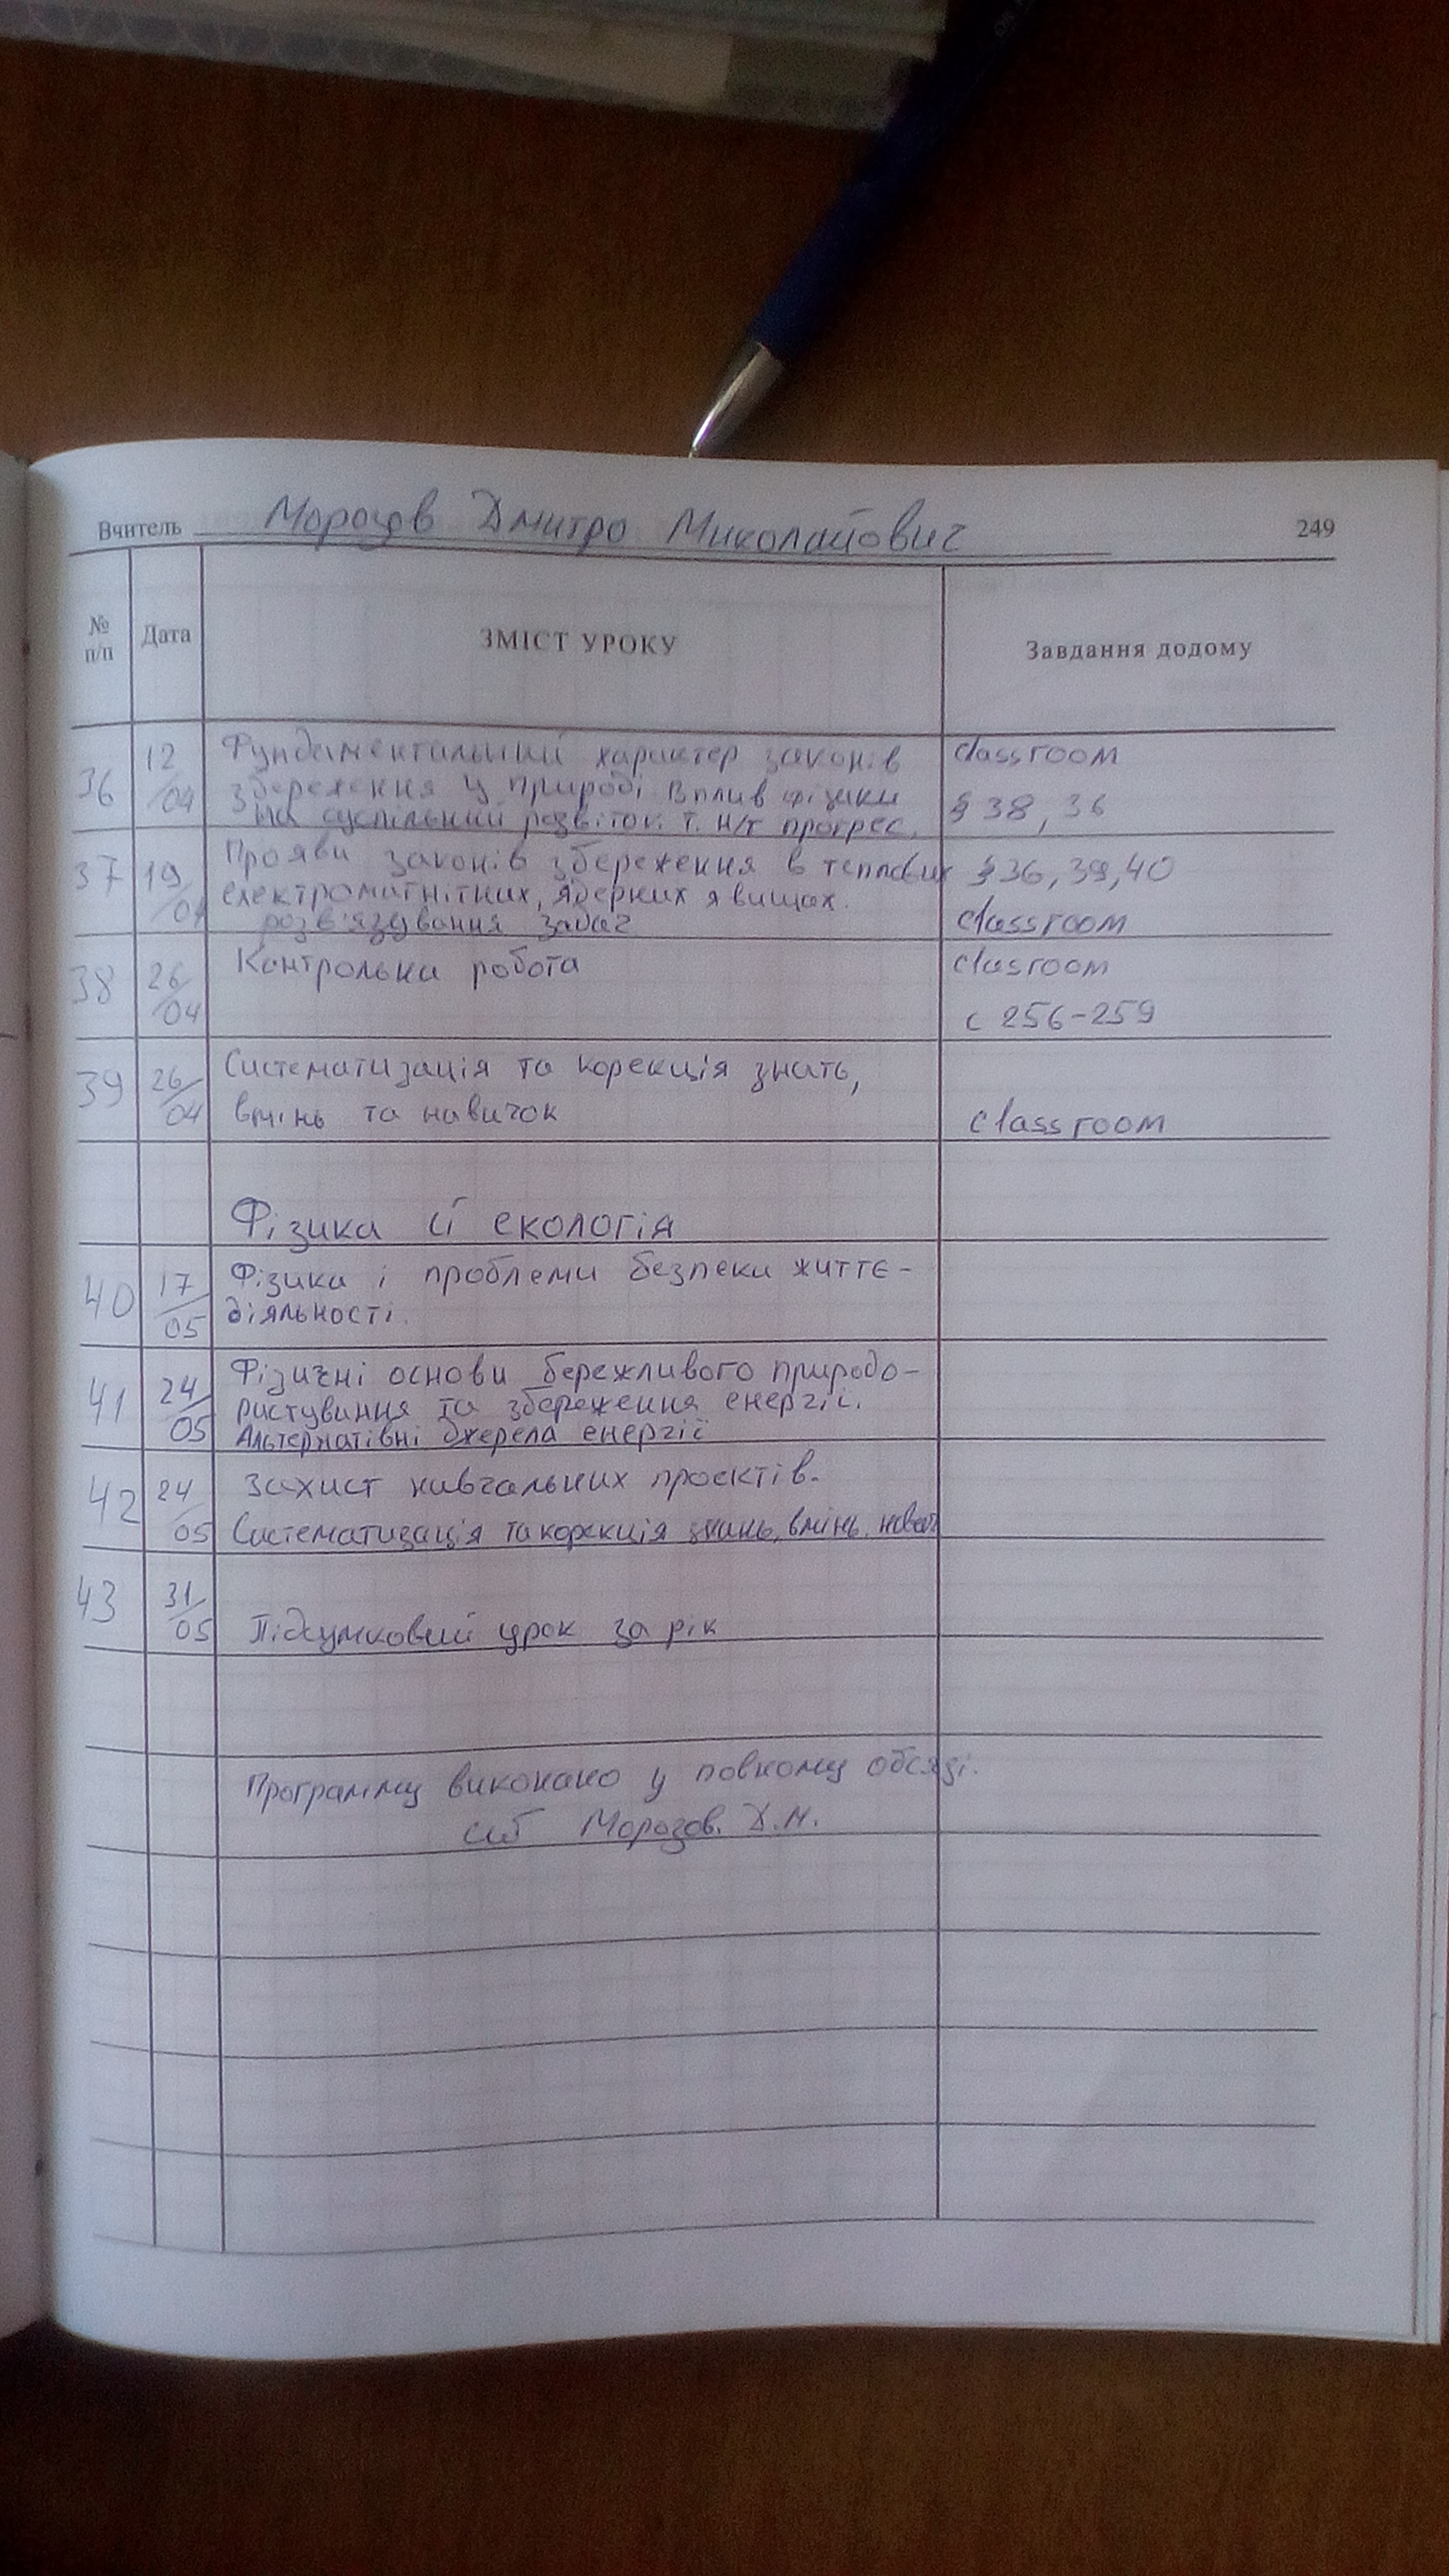 Вчитель Морозов Дмитро Миколайович 249
№ п/п Дата ЗМІСТ УРОКУ Завдання додому
36 12/04 Фундаментальний характер законів classroom
збереження у природі. Вплив фізики § 38, 36
на суспільний розвиток. т. н/т прогрес.
37 19/04 Прояви законів збереження в теплових § 36, 39, 40
електромагнітних, ядерних явищах.
розв'язування задач classroom
38 26/04 Контрольна робота clasroom
с 256-259
39 26/04 Систематизація та корекція знать,
вмінь та навичок classroom
Фізика й екологія
40 17/05 Фізика і проблеми безпеки життє-
діяльності.
41 24/05 Фізичні основи бережливого природо-
ристування та збереження енергії.
Альтернатівні джерела енергії
42 24/05 Захист навчальних проєктів.
Систематизація та корекція знань, вмінь,
43 31/05 Підсумковий урок за рік
Программу виконано у повному обсязі.
Морозов. Д.М.